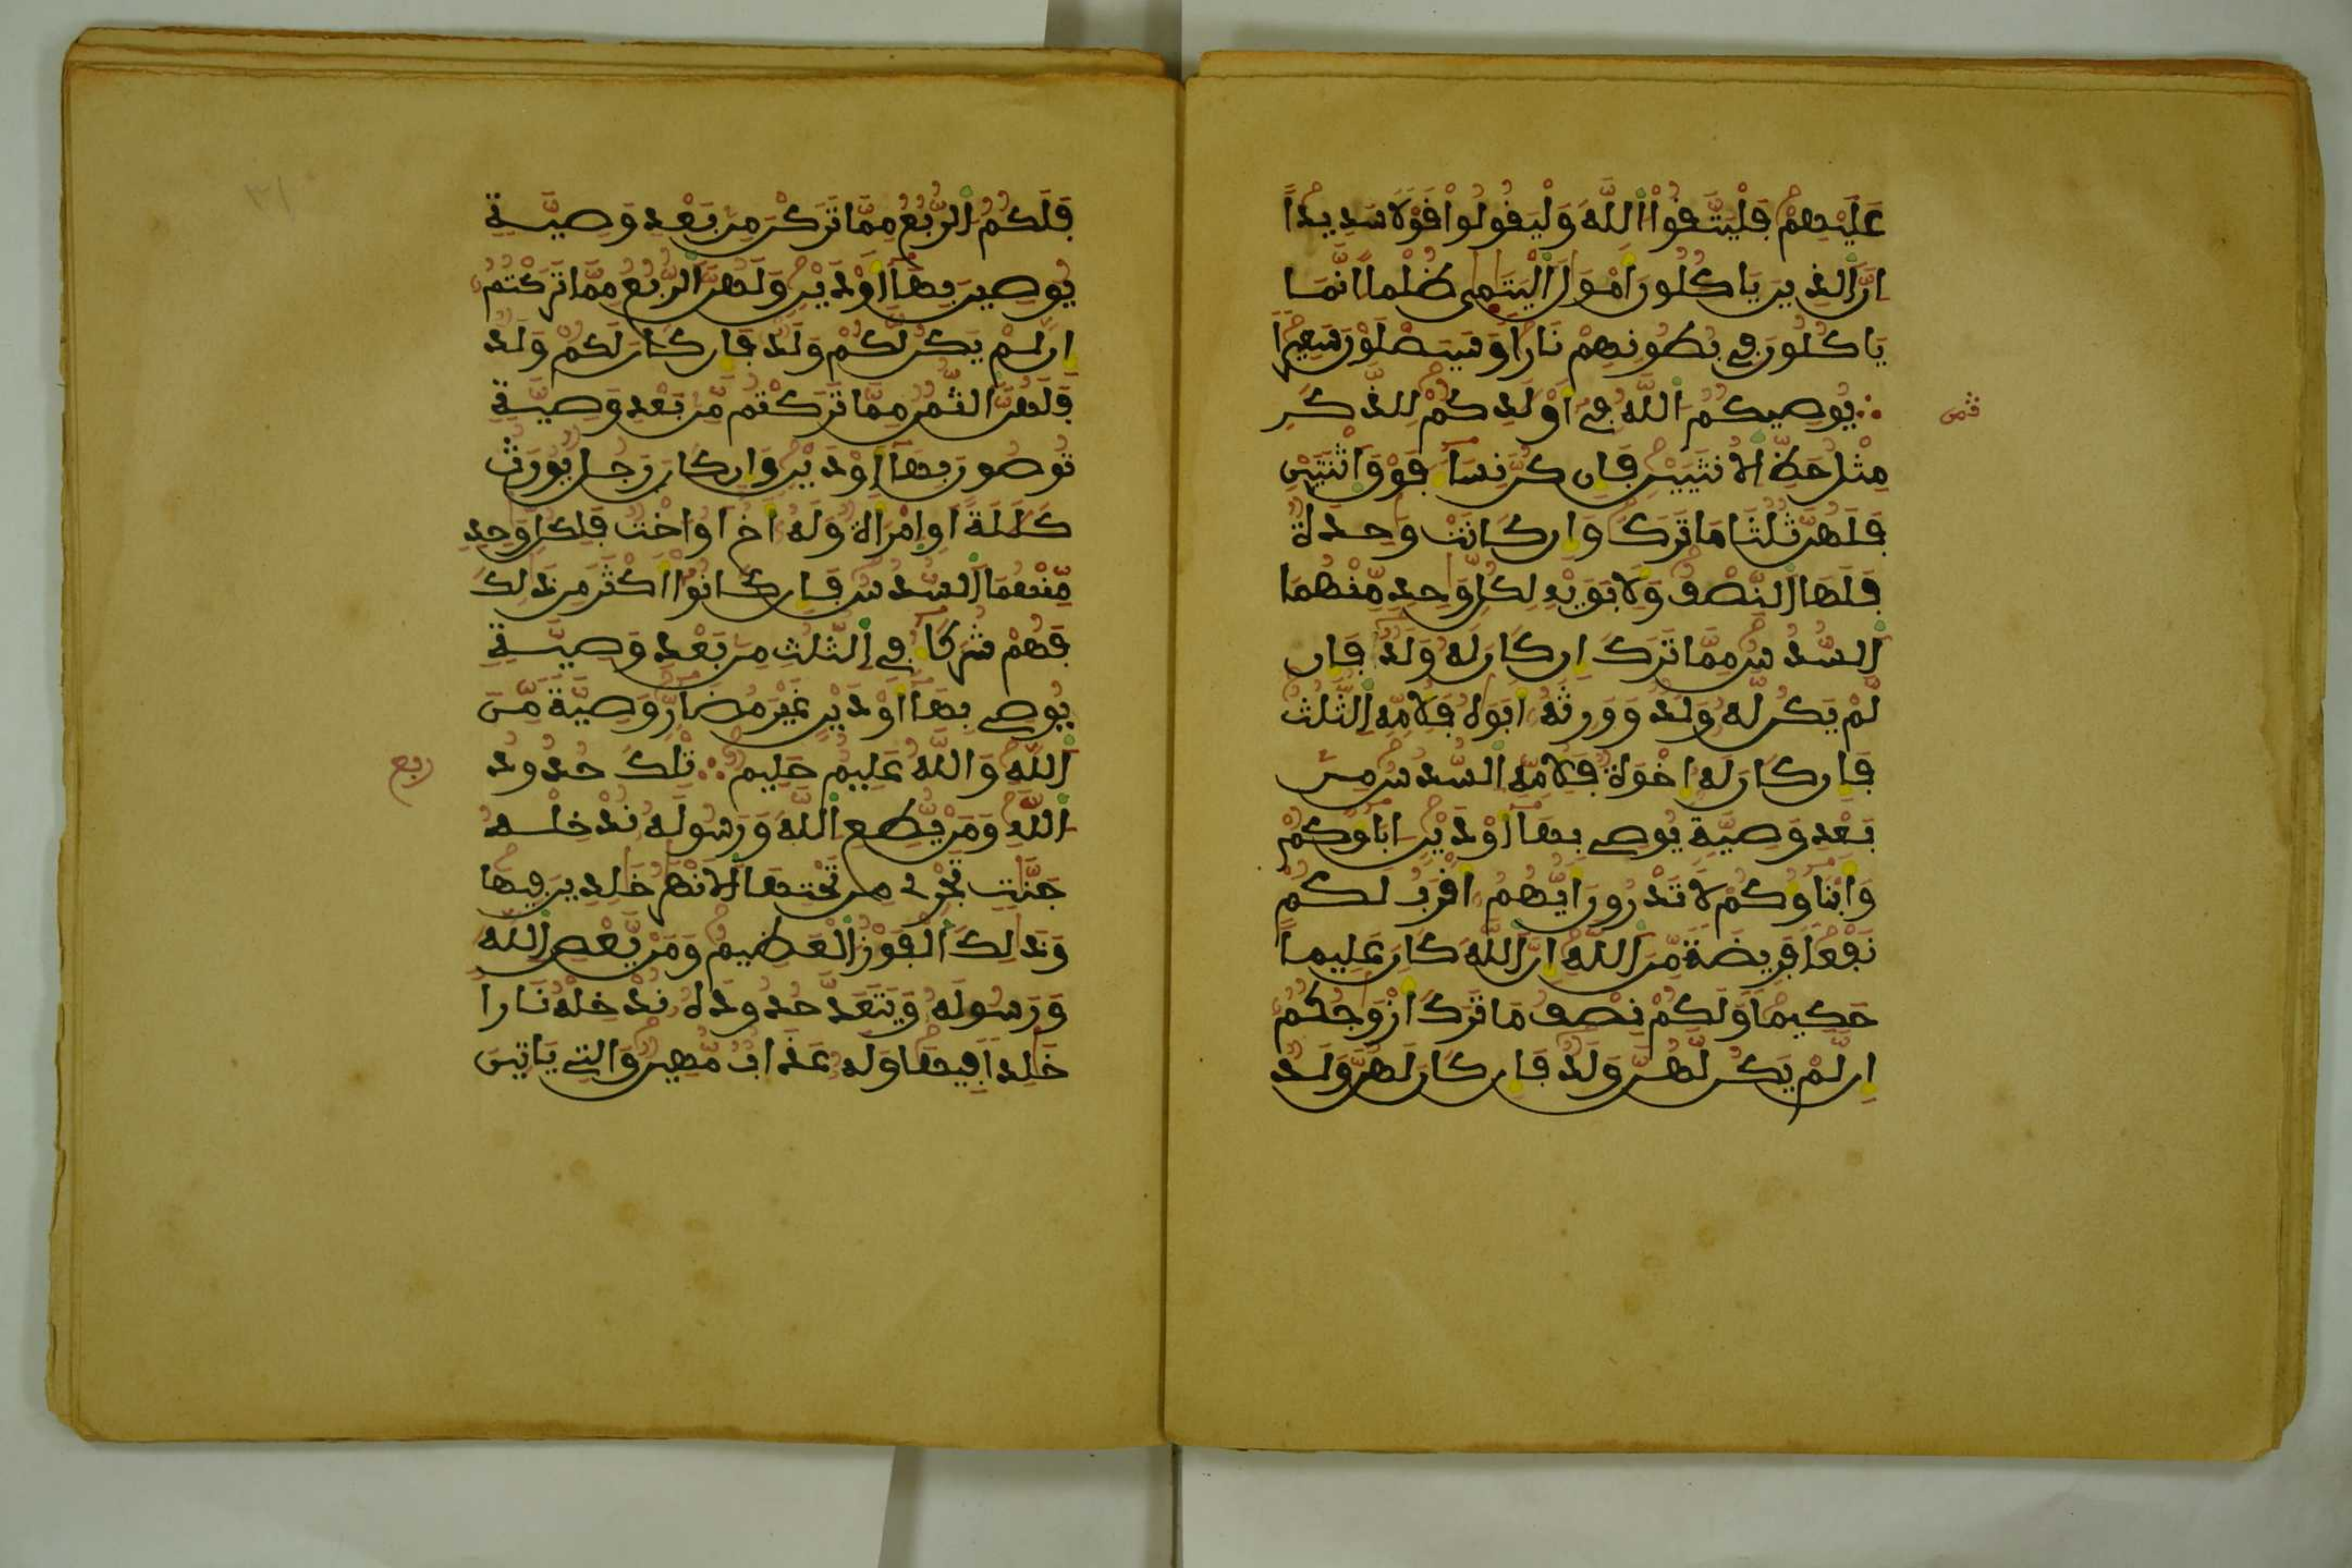 عَلَيْهِمْ فَلْيَتَّقُوا اْللَّهَ وَلْيَقُولُوا قَوْلا سَدِيداً
اِنَّ اَلذِينَ يَاكُلُونَ أَمْوَالَ اَلْيَتَٰمىٰ ظُلْماً اِنَّمَا
يَاكُلُونَ فِي بُطُونِهِمْ نَاراً وَسَيَصْلَوْنَ سَعِيراً
ثمن
يُوصِيكُمُ اللَّهُ فِي أَوْلَٰدِكُمْ لِلذَّكَرِ
مِثْلُ حَظِّ الاُنثَيَيْنِ فَإِن كُنَّ نِسَاءً فَوْقَ اَثْنَتَيْنِ
فَلَهُنَّ ثُلُثَا مَا تَرَكَ وَإِن كَانَتْ وَٰحِدَةٌ
فَلَهَا اَلنِّصْفُ وَلِأَبَوَيْهِ لِكُلِّ وَٰحِدٍ مِّنْهُمَا
اَلسُّدُسُ مِمَّا تَرَكَ إِن كَانَ لَهُ وَلَدٌ فَإِن
لَّمْ يَكُن لَّهُ وَلَدٌ وَوَرِثَهُ أَبَوَٰهُ فَلِأُمِّهِ اِلثُّلُثُ
فَإِن كَانَ لَهُ إِخْوَةٌ فَلِأُمِّهِ اِلسُّدُسُ مِنۢ
بَعْدِ وَصِيَّةٍ يُوصِي بِهَا أَوْ دَيْنٍ ءَابَاؤُكُمْ
وَأَبْنَاؤُكُمْ لاَ تَدْرُونَ أَيُّهُمُ أَقْرَبُ لَكُمْ
نَفْعاً فَرِيضَةً مِّنَ اَللَّهِ إِنَّ اَللَّهَ كَانَ عَلِيماً
حَكِيماً وَلَكُمْ نِصْفُ مَا تَرَكَ أَزْوَٰجُكُمُ
إِن لَّمْ يَكُن لَّهُنَّ وَلَدٌ فَإِن كَانَ لَهُنَّ وَلَدٌ
٣١
فَلَكُمُ اُلرُّبُعُ مِمَّا تَرَكْنَ مِنۢ بَعْدِ وَصِيَّةٍ
يُوصِينَ بِهَا أَوْ دَيْنٍ وَلَهُنَّ اَلرُّبُعُ مِمَّا تَرَكْتُمُ
إِن لَّمْ يَكُن لَّكُمْ وَلَدٌ فَإِن كَانَ لَكُمْ وَلَدٌ
فَلَهُنَّ اَلثُّمُنُ مِمَّا تَرَكْتُم مِّنۢ بَعْدِ وَصِيَّةٍ
تُوصُونَ بِهَا أَوْ دَيْنٍ وَإِن كَانَ رَجُلٌ يُورَثُ
كَلَٰلَةً أَوِ اِمْرَأَةٌ وَلَهُ أَخٌ أَوْ أُخْتٌ فَلِكُلِّ وَٰحِدٍ
مِّنْهُمَا اَلسُّدُسُ فَإِن كَانُوا أَكْثَرَ مِن ذَٰلِكَ
فَهُمْ شُرَكَاءُ فِي اِلثُّلُثِ مِنۢ بَعْدِ وَصِيَّةٍ
يُوصِي بِهَا أَوْ دَيْنٍ غَيْرَ مُضَارٍّ وَصِيَّةً مِّنَ
اَللَّهِ وَاللَّهُ عَلِيمٌ حَلِيمٌ تِلْكَ حُدُودُ
ربع
اُللَّهِ وَمَنْ يُّطِعِ اِللَّهَ وَرَسُولَهُ نُدْخِلْهُ
جَنَّٰتٍ تَجْرِي مِن تَحْتِهَا اَلاَنْهَٰرُ خَٰلِدِينَ فِيهَا
وَذَٰلِكَ اَلْفَوْزُ اُلْعَظِيمُ وَمَنْ يَّعْصِ اِللَّهَ
وَرَسُولَهُ وَيَتَعَدَّ حُدُودَهُ نُدْخِلْهُ نَاراً
خَٰلِداً فِيهَا وَلَهُ عَذَابٌ مُّهِينٌ وَالتِي يَاتِينَ